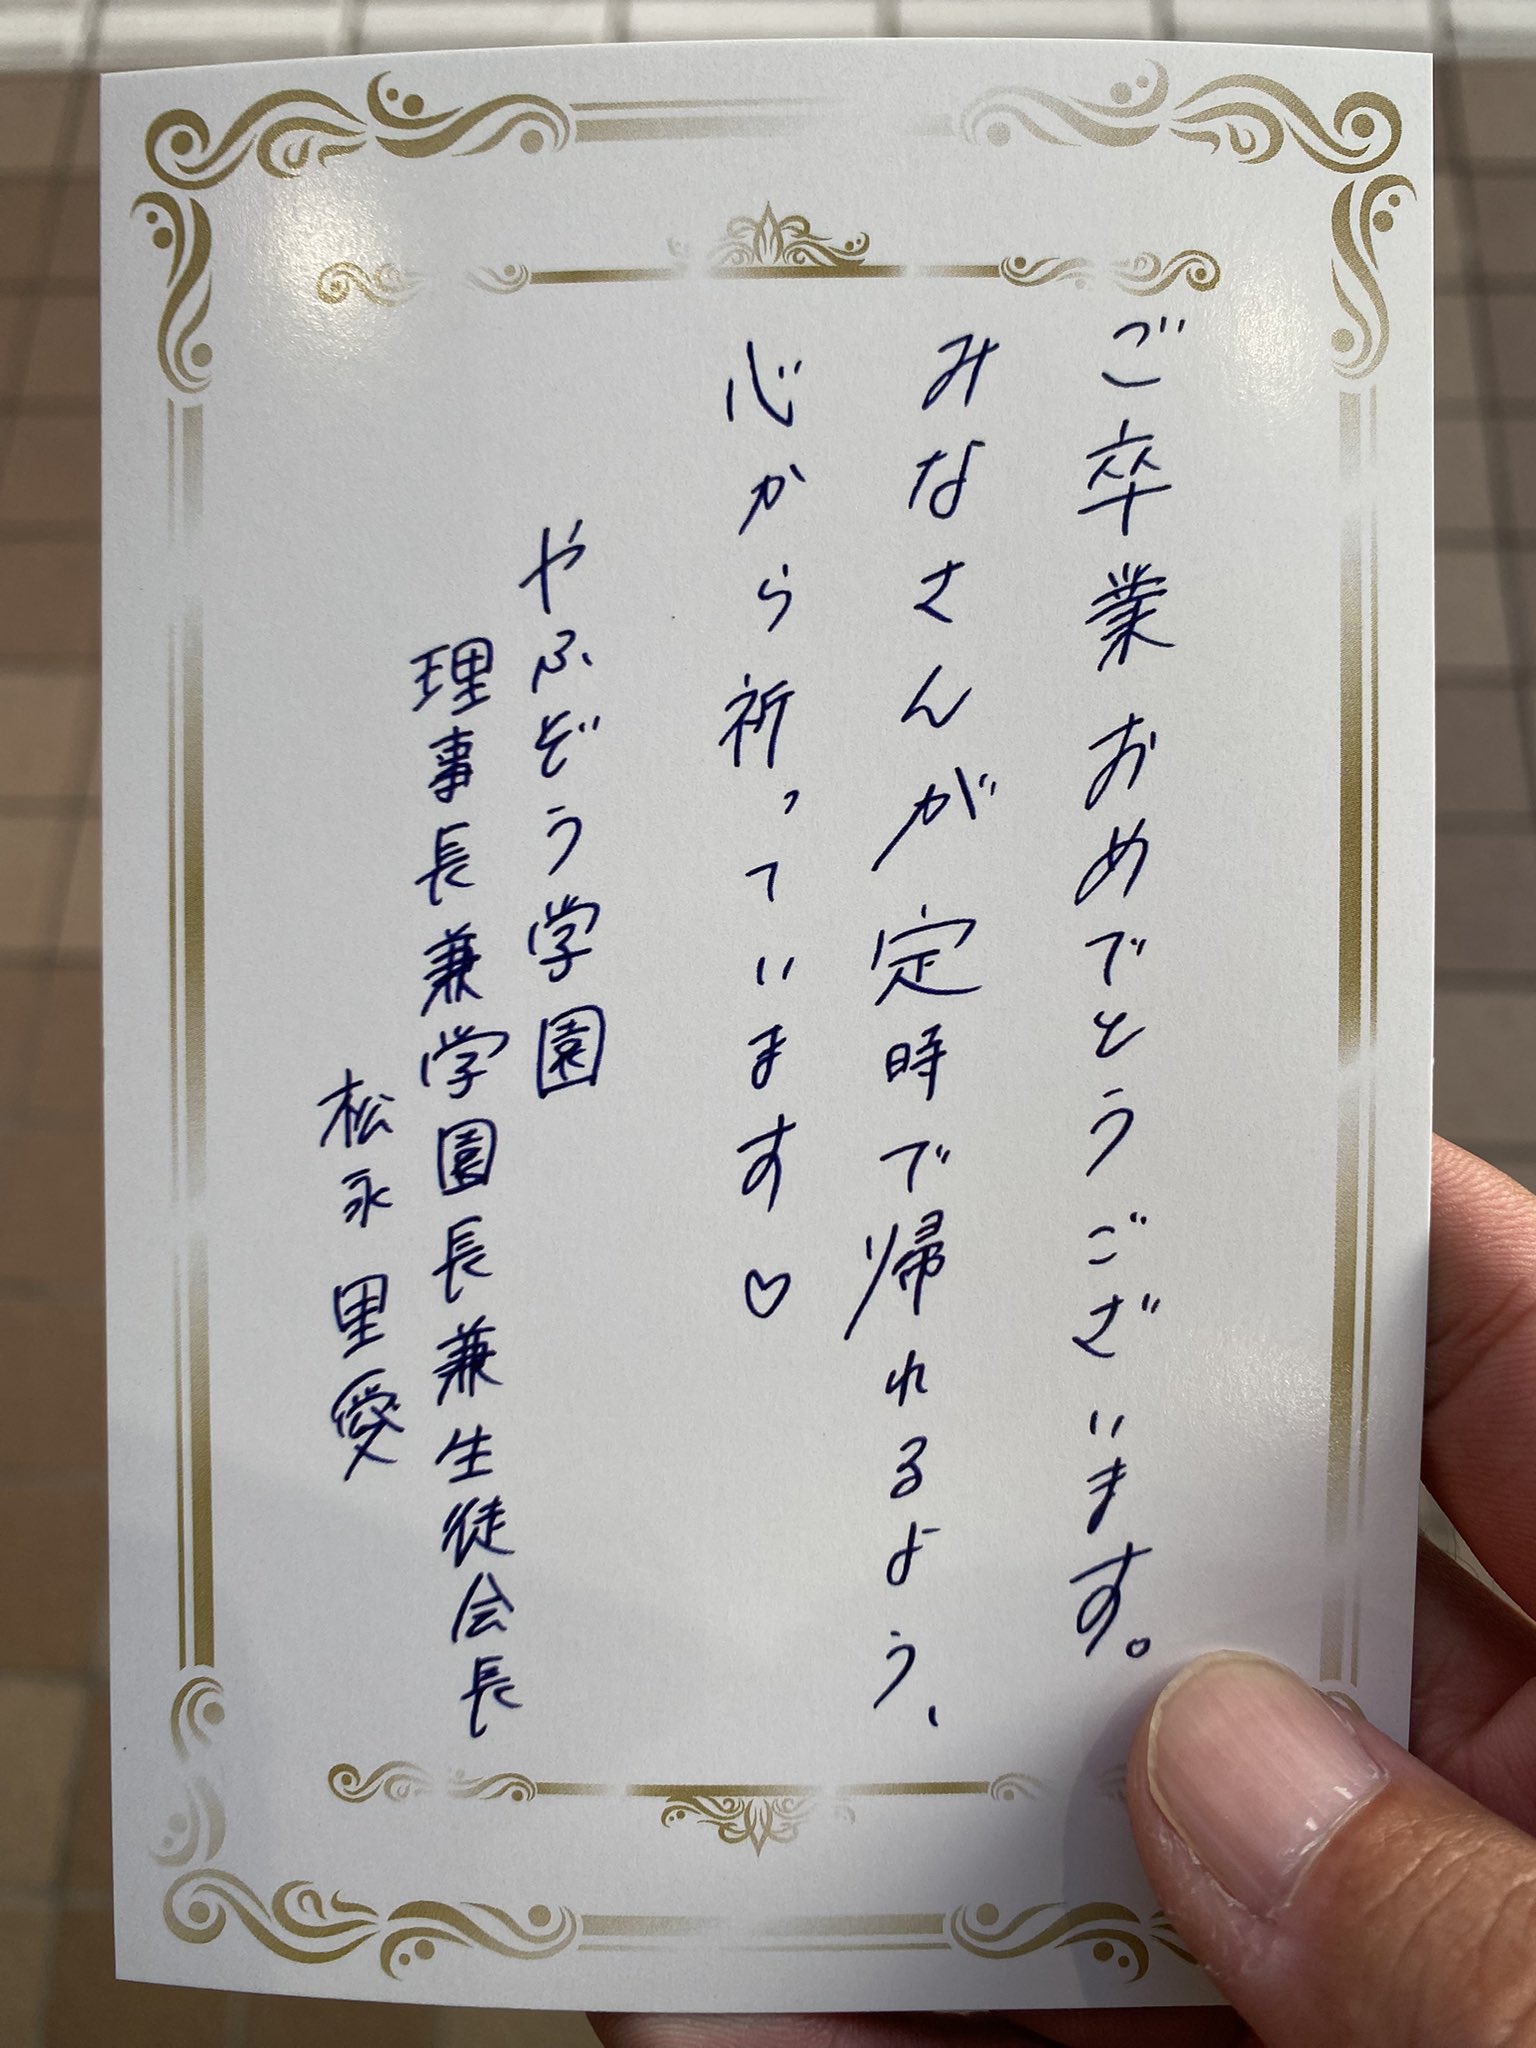 ご卒業おめでとうございます。
みなさんが定時で帰れるよう、
心から祈っています♡
やふぞう学園
理事長兼学園長兼生徒会長
松永里愛